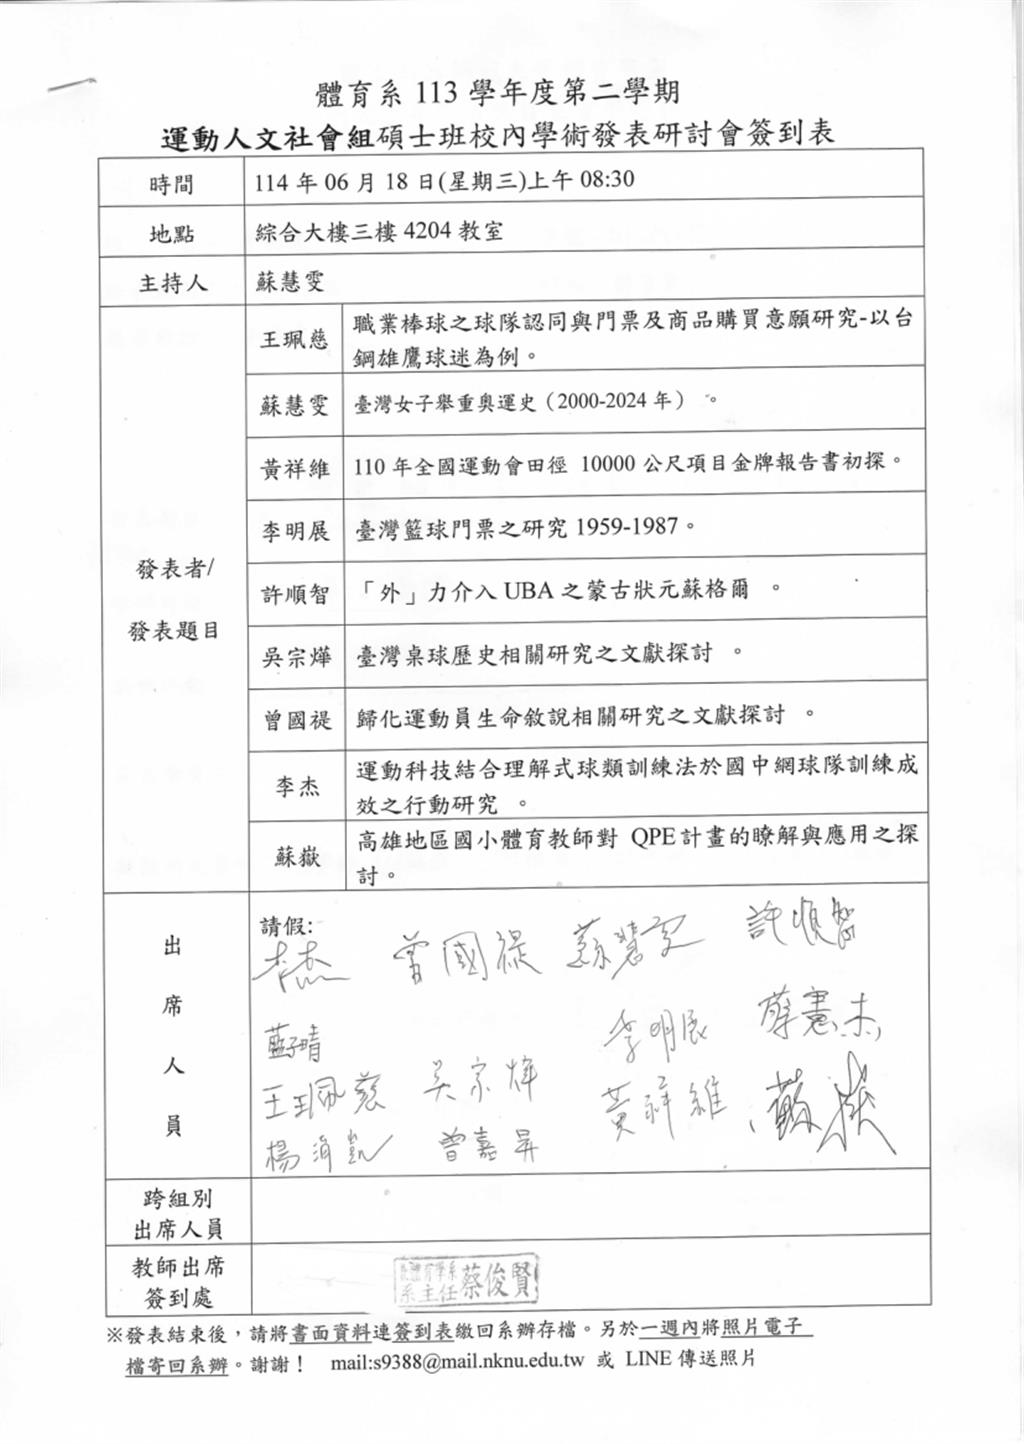 體育系 113 學年度第二學期
運動人文社會組碩士班校內學術發表研討會簽到表
時間
114 年 06 月 18 日(星期三)上午 08:30
地點
綜合大樓三樓 4204 教室
主持人
蘇慧雯
發表者/
發表題目
王珮慈
職業棒球之球隊認同與門票及商品購買意願研究-以台
鋼雄鷹球迷為例。
蘇慧雯
臺灣女子舉重奧運史（2000-2024 年） 。
黃祥維
110 年全國運動會田徑 10000 公尺項目金牌報告書初探。
李明展
臺灣籃球門票之研究 1959-1987。
許順智
「外」力介入 UBA 之蒙古狀元蘇格爾 。
吳宗燁
臺灣桌球歷史相關研究之文獻探討 。
曾國禔
歸化運動員生命敘說相關研究之文獻探討 。
李杰
運動科技結合理解式球類訓練法於國中網球隊訓練成
效之行動研究 。
蘇嶽
高雄地區國小體育教師對 QPE 計畫的瞭解與應用之探
討。
出
席
人
員
請假:
李杰 曾國禔 蘇慧雯 許順智
藍子晴 李明展
王珮慈 吳宗燁 黃祥維 蘇嶽
曾嘉昇
跨組別
出席人員
教師出席
簽到處
體育學系
系主任 蔡俊賢
※發表結束後，請將書面資料連簽到表繳回系辦存檔。另於一週內將照片電子
檔寄回系辦。謝謝！ mail:s9388@mail.nknu.edu.tw 或 LINE 傳送照片